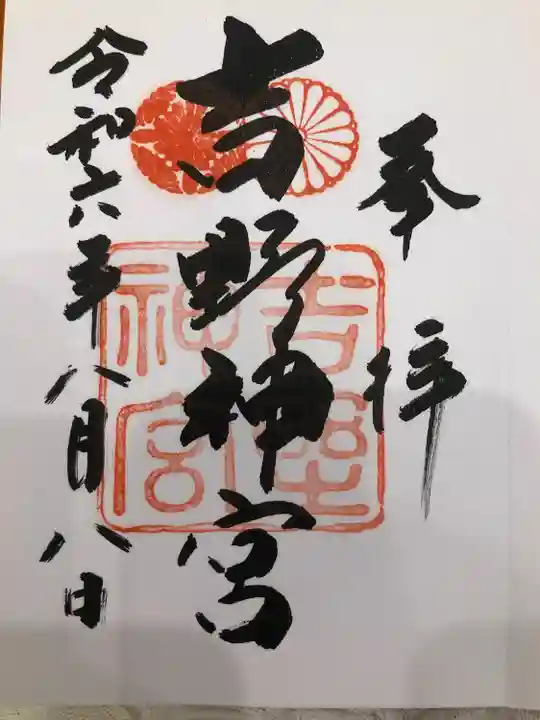 奉拝
吉野神宮
令和六年八月八日
吉野
神宮